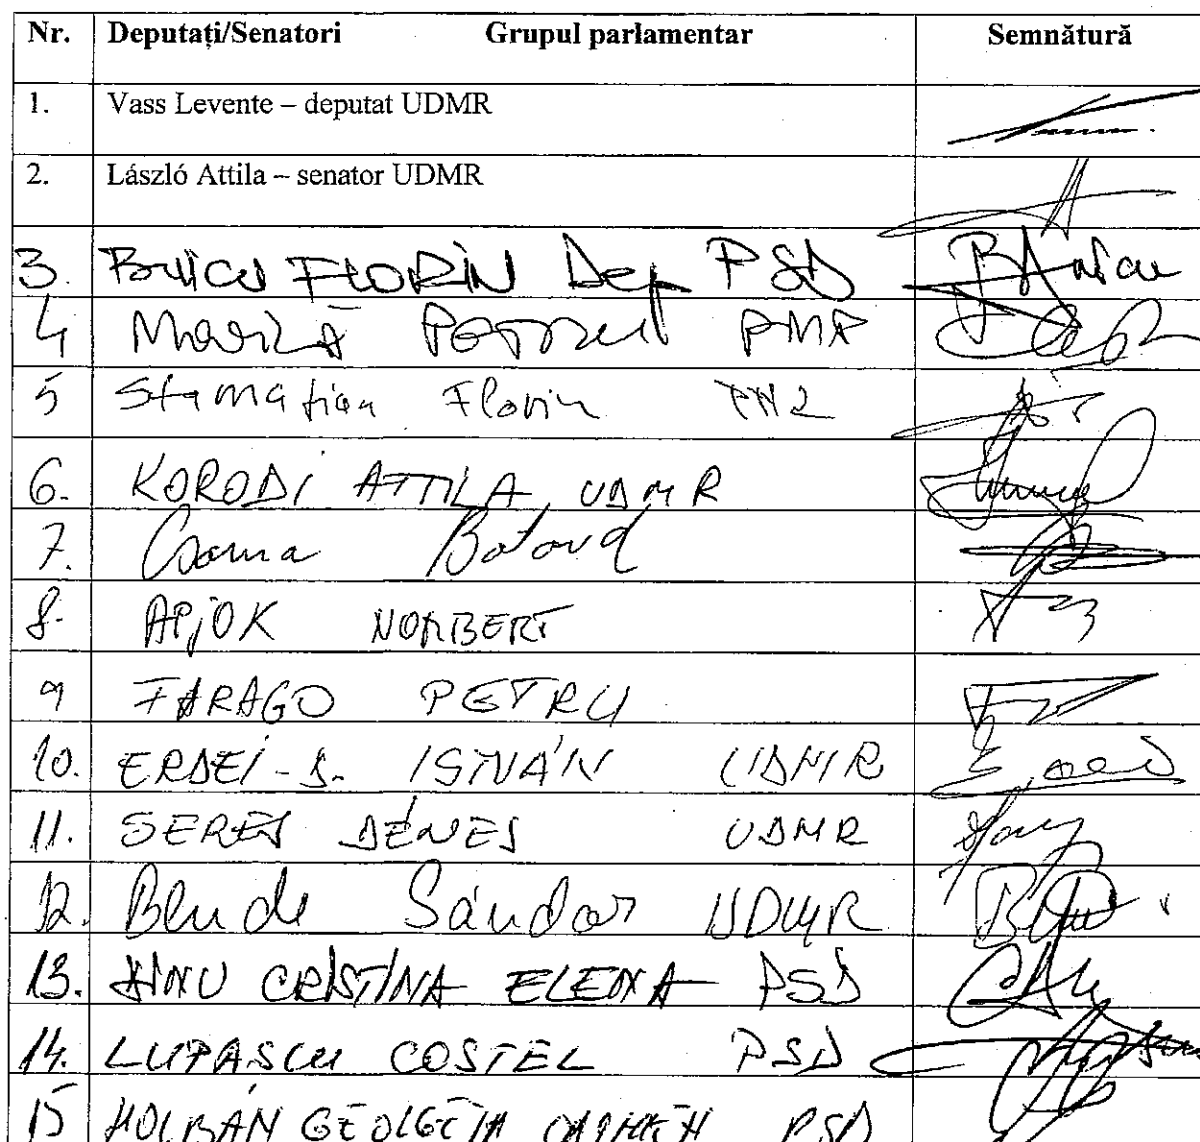 Nr. Deputați/Senatori Grupul parlamentar Semnătură
1. Vass Levente – deputat UDMR
2. László Attila – senator UDMR
3. Buicu FLORIN Dep PSD
4 Movilă Petru PMP
5 Stamatian Florin PNL
6. KORODI ATTILA UDMR
7. Csoma Botond
8. APJOK NORBERT
9 FARAGO PETRU
10. ERDEI-D. ISTVÁN UDMR
11. SERES DÉNES UDMR
12. Bende Sándor UDMR
13. DINU CRISTINA ELENA PSD
14. LUPASCU COSTEL PSD
15 HOLBAN GEORGETA CARMEN PSD